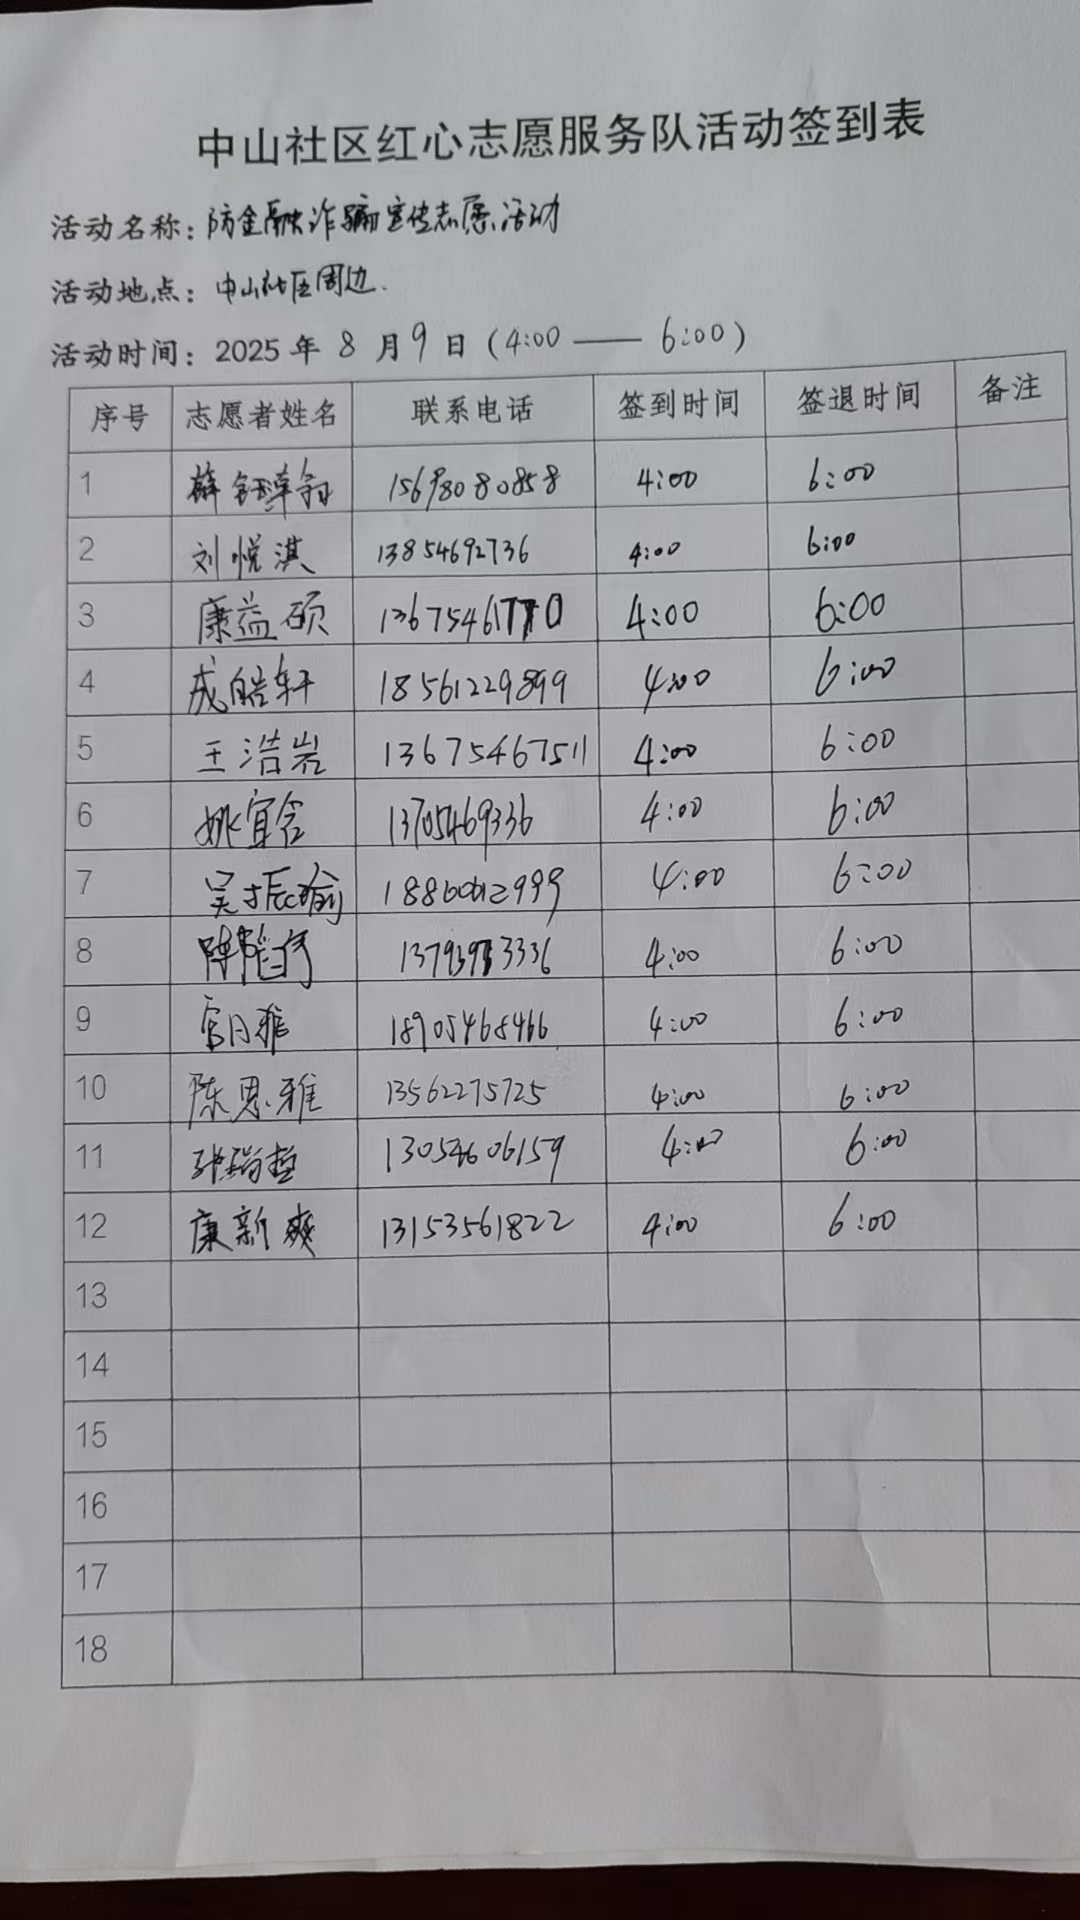 中山社区红心志愿服务队活动签到表
活动名称：防金融诈骗宣传志愿活动
活动地点：中山社区周边.
活动时间：2025年 8 月 9 日（4:00 —— 6:00）
序号 志愿者姓名 联系电话 签到时间 签退时间 备注
1 薛 4:00 6:00
2 刘悦淇 13854692736 4:00 6:00
3 康益硕 4:00 6:00
4 成皓轩 18561229899 4:00 6:00
5 王浩岩 13675467511 4:00 6:00
6 姚宜含 13705469336 4:00 6:00
7 吴振瑜 4:00 6:00
8 4:00 6:00
9 18905468466 4:00 6:00
10 陈思雅 13562275725 4:00 6:00
11 张瑞哲 13054606159 4:00 6:00
12 康新爽 13153561822 4:00 6:00
13
14
15
16
17
18